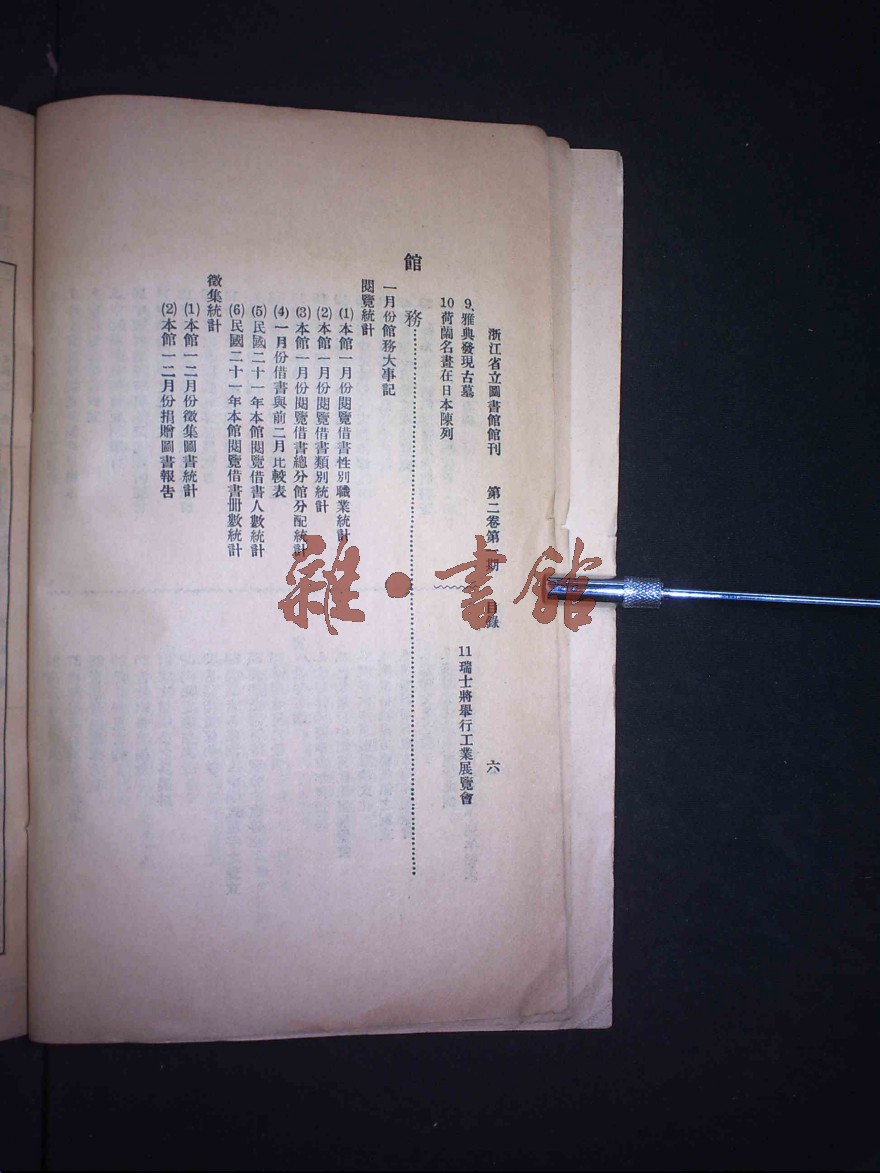 浙江省立圖書館館刊 第二卷第一期 目錄 六
9.雅典發現古墓
11瑞士將舉行工業展覽會
10荷蘭名畫在日本陳列
館務
一月份館務大事記
閱覽統計
(1)本館一月份閱覽借書性別職業統計
(2)本館一月份閱覽借書類別統計
(3)本館一月份閱覽借書總分館分配統計
(4)一月份借書與前二月比較表
(5)民國二十一年本館閱覽借書人數統計
(6)民國二十一年本館閱覽借書冊數統計
徵集統計
(1)本館一二月份徵集圖書統計
(2)本館一二月份捐贈圖書報告
雜·書館